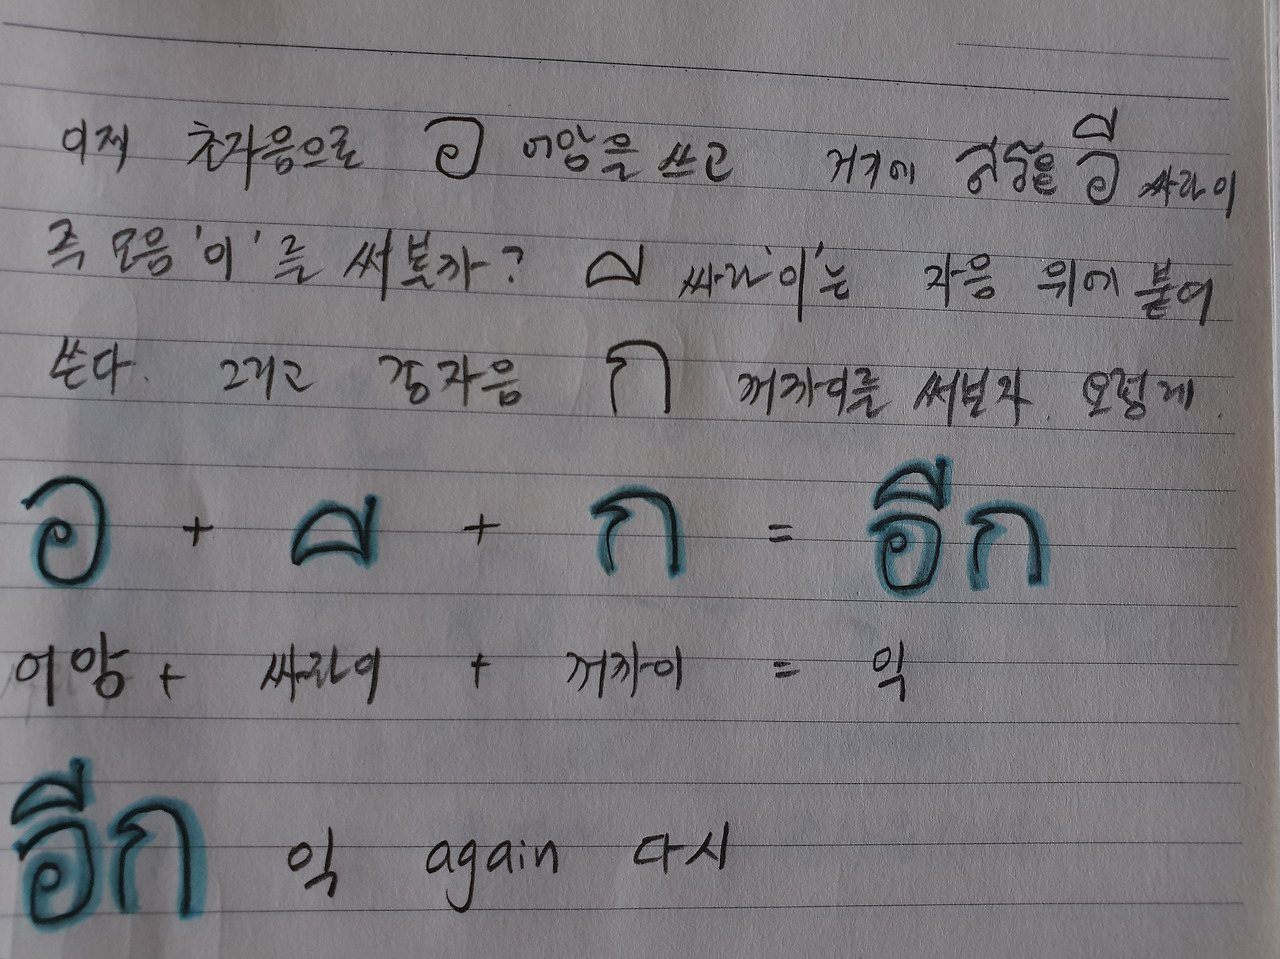 이제 초자음으로 อ 어앙을 쓰고 거기에 สระอี 싸라이
즉 모음 '이'를 써볼까? ี 싸라'이'는 자음 위에 붙여
쓴다. 그리고 종자음 ก 꺼까이를 써보자. 요렇게.
อ + ี + ก = อีก
어앙 + 싸라이 + 꺼까이 = 익
อีก 익 again 다시